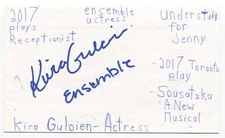 2017
plays
Receptionist
ensemble
actress
Understudy
for
Jenny
Kira Guloien
Ensemble
-2017 Toronto
play
-
Sousatzka
A New
Musical
Kira Guloien-Actress